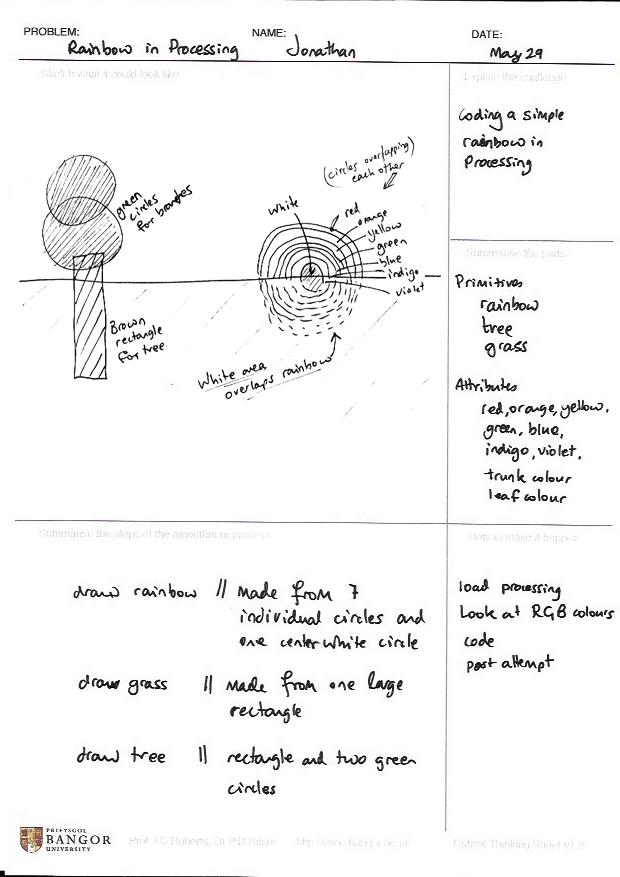 PROBLEM: Rainbow in Processing NAME: Jonathan DATE: May 29
Sketch what it could look like
green
circles
for branches
(circles overlapping
each other
White
red
orange
yellow
green
blue
indigo
violet
Brown
rectangle
for tree
White area
overlaps rainbow
Explain the challenge
Coding a simple
rainbow in
Processing
Summarise the parts
Primitives
rainbow
tree
grass
Attributes
red, orange, yellow,
green, blue,
indigo, violet,
trunk colour
leaf colour
Summarise the steps of the algorithm or process
draw rainbow // made from 7
individual circles and
one center white circle
draw grass // made from one large
rectangle
draw tree // rectangle and two green
circles
How to make it happen
load processing
Look at RGB colours
code
post attempt
PRIFYSGOL
BANGOR
UNIVERSITY
Prof J.C Roberts, Dr P.D
Critical Thinking Sheet v1.2